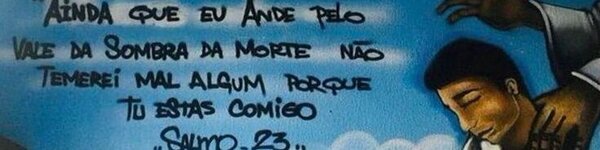 "AINDA QUE EU ANDE PELO
VALE DA SOMBRA DA MORTE NÃO
TEMEREI MAL ALGUM PORQUE
TU ESTAS COMIGO
„SALMO. 23„